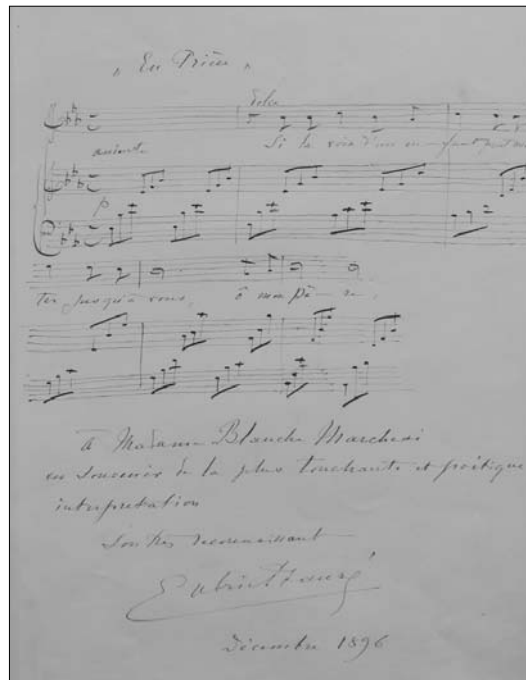 „ En Prière "
dolce
andante Si la voix d'un en-fant peut mon
p
ter jusqu'à vous, ô mon Pè - re,
à Madame Blanche Marchesi
en souvenir de la plus touchante et poétique
interprétation
Son très reconnaissant
Gabriel Fauré
Décembre 1896